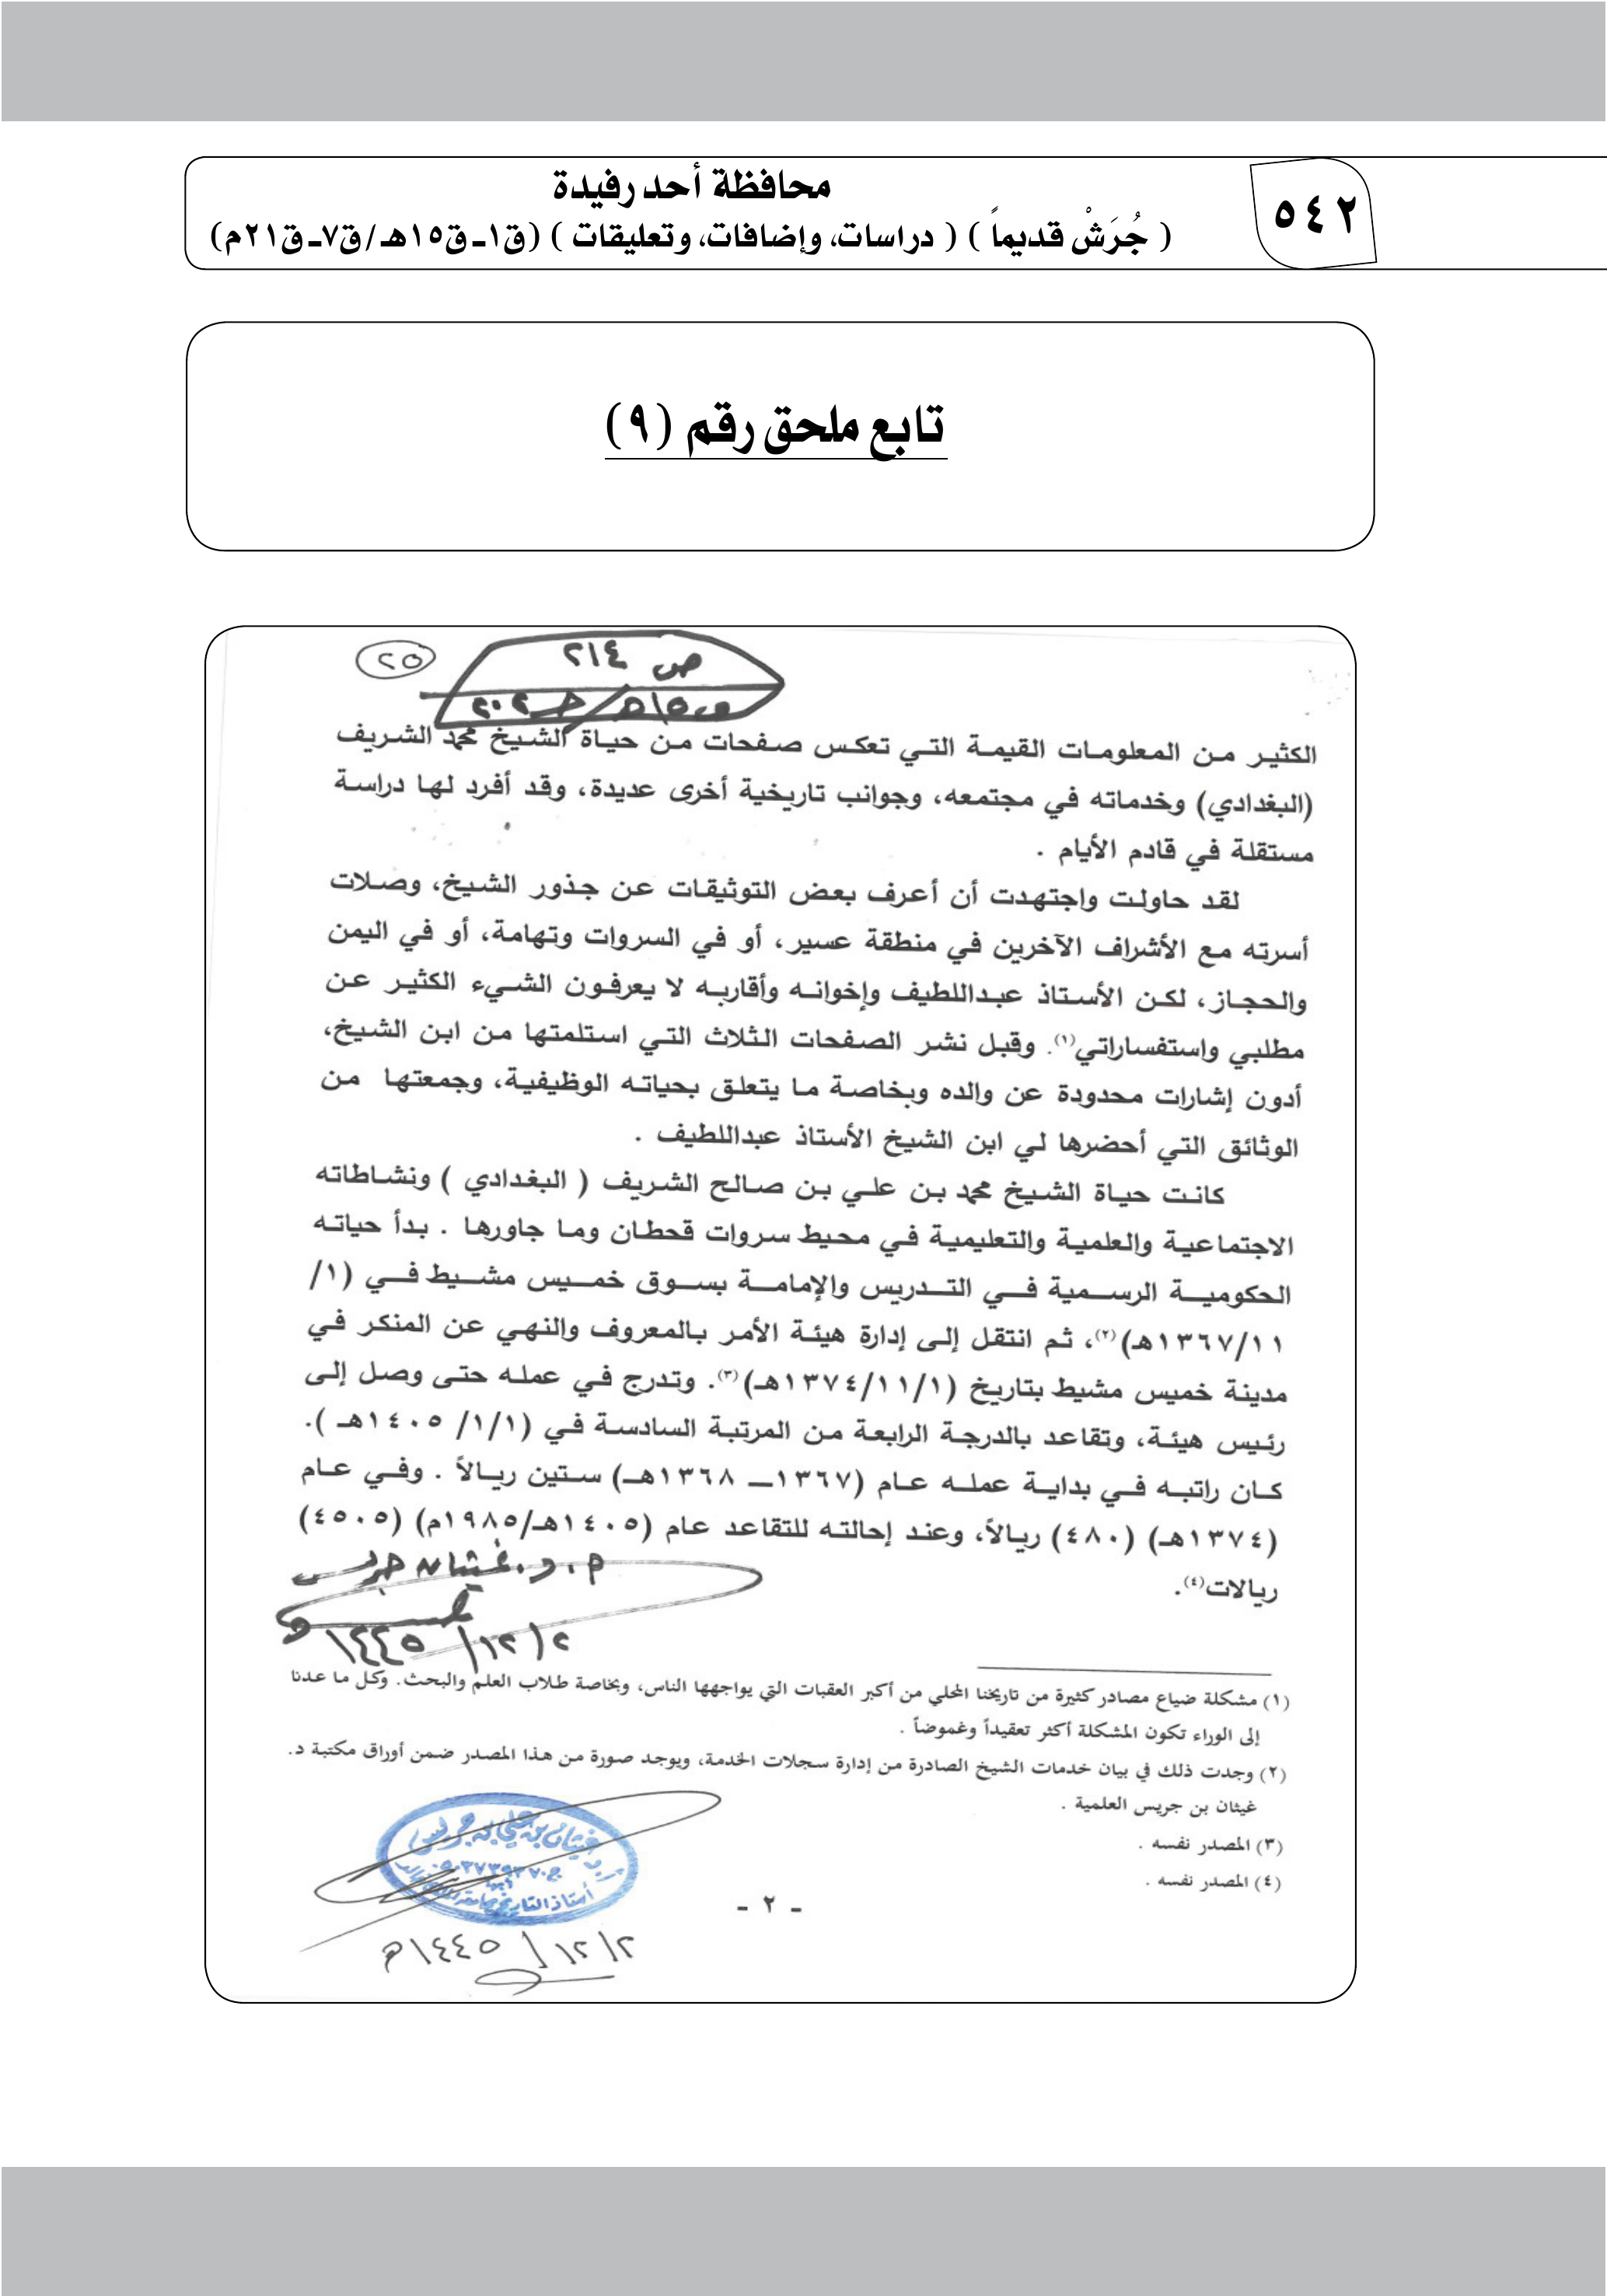 ٥٤٢
محافظة أحد رفيدة
( جُرَشْ قديماً ) ( دراسات، وإضافات، وتعليقات ) (ق١ـ ق١٥هـ /ق٧ـ ق٢١م)
تابع ملحق رقم (٩)
٢٥
ص ٢١٤
الكثير من المعلومات القيمة التي تعكس صفحات من حياة الشيخ محمد الشريف
(البغدادي) وخدماته في مجتمعه، وجوانب تاريخية أخرى عديدة، وقد أفرد لها دراسة
مستقلة في قادم الأيام .
لقد حاولت واجتهدت أن أعرف بعض التوثيقات عن جذور الشيخ، وصلات
أسرته مع الأشراف الآخرين في منطقة عسير، أو في السروات وتهامة، أو في اليمن
والحجاز، لكن الأستاذ عبداللطيف وإخوانه وأقاربه لا يعرفون الشيء الكثير عن
مطلبي واستفساراتي(١). وقبل نشر الصفحات الثلاث التي استلمتها من ابن الشيخ،
أدون إشارات محدودة عن والده وبخاصة ما يتعلق بحياته الوظيفية، وجمعتها من
الوثائق التي أحضرها لي ابن الشيخ الأستاذ عبداللطيف .
كانت حياة الشيخ محمد بن علي بن صالح الشريف ( البغدادي ) ونشاطاته
الاجتماعية والعلمية والتعليمية في محيط سروات قحطان وما جاورها . بدأ حياته
الحكومية الرسمية في التدريس والإمامة بسوق خميس مشيط في (١/
١٣٦٧/١١هـ)(٢)، ثم انتقل إلى إدارة هيئة الأمر بالمعروف والنهي عن المنكر في
مدينة خميس مشيط بتاريخ (١٣٧٤/١١/١هـ)(٣). وتدرج في عمله حتى وصل إلى
رئيس هيئة، وتقاعد بالدرجة الرابعة من المرتبة السادسة في (١/١/ ١٤٠٥هـ ).
كان راتبه في بداية عمله عام (١٣٦٧ــ ١٣٦٨هـ) ستين ريالاً . وفي عام
(١٣٧٤هـ) (٤٨٠) ريالاً، وعند إحالته للتقاعد عام (١٤٠٥هـ/١٩٨٥م) (٤٥٠٥)
ريالات(٤).
م . د . غيثان جريس
٢ / ١٢ / ١٤٤٥
(١) مشكلة ضياع مصادر كثيرة من تاريخنا المحلي من أكبر العقبات التي يواجهها الناس، وبخاصة طلاب العلم والبحث. وكل ما عدنا
إلى الوراء تكون المشكلة أكثر تعقيداً وغموضاً .
(٢) وجدت ذلك في بيان خدمات الشيخ الصادرة من إدارة سجلات الخدمة، ويوجد صورة من هذا المصدر ضمن أوراق مكتبة د.
غيثان بن جريس العلمية .
(٣) المصدر نفسه .
(٤) المصدر نفسه .
غيثان بن علي بن جريس
أستاذ التاريخ
- ٢ -
٢ / ١٢ / ١٤٤٥هـ